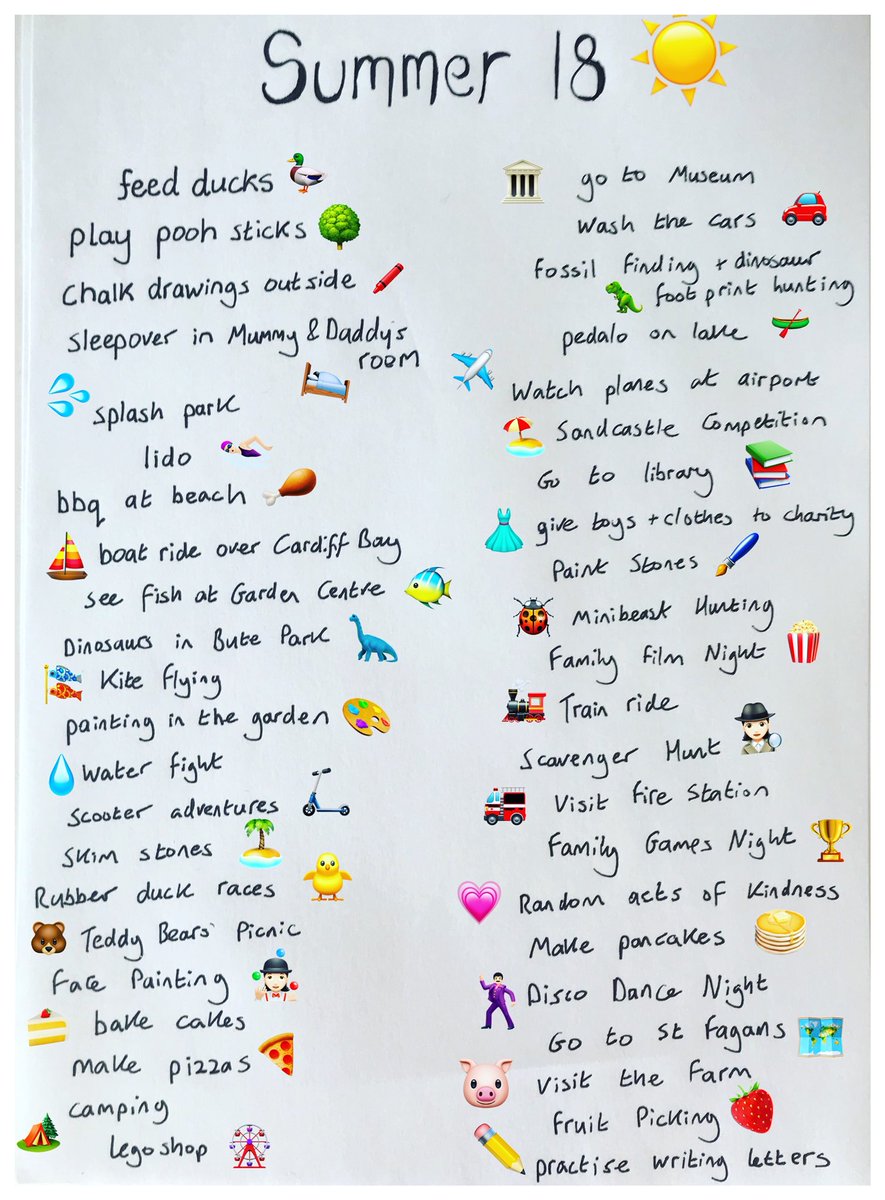 Summer 18
feed ducks
play pooh sticks
Chalk drawings outside
sleepover in Mummy & Daddy's
room
splash park
lido
bbq at beach
boat ride over Cardiff Bay
see fish at Garden Centre
Dinosaurs in Bute Park
Kite flying
painting in the garden
Water fight
scooter adventures
Skim stones
Rubber duck races
Teddy Bears' Picnic
Face Painting
bake cakes
make pizzas
camping
lego shop
go to Museum
wash the cars
Fossil finding + dinosaur
foot print hunting
pedalo on lake
Watch planes at airport
Sandcastle Competition
Go to library
give toys + clothes to charity
Paint Stones
Minibeast Hunting
Family film Night
Train ride
Scavenger Hunt
Visit Fire Station
Family Games Night
Random acts of Kindness
Make pancakes
Disco Dance Night
Go to St Fagans
Visit the Farm
Fruit Picking
practise writing letters